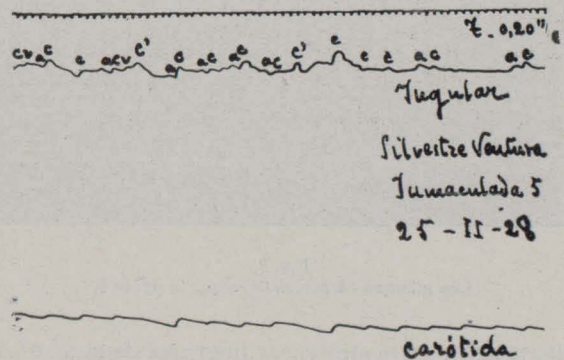 t. 0,20"
cv a c c a c v c' a c a c a c a c c' c c c a c a c
Jugular
Silvestre Ventura
Inmaculada 5
25-II-28
carótida